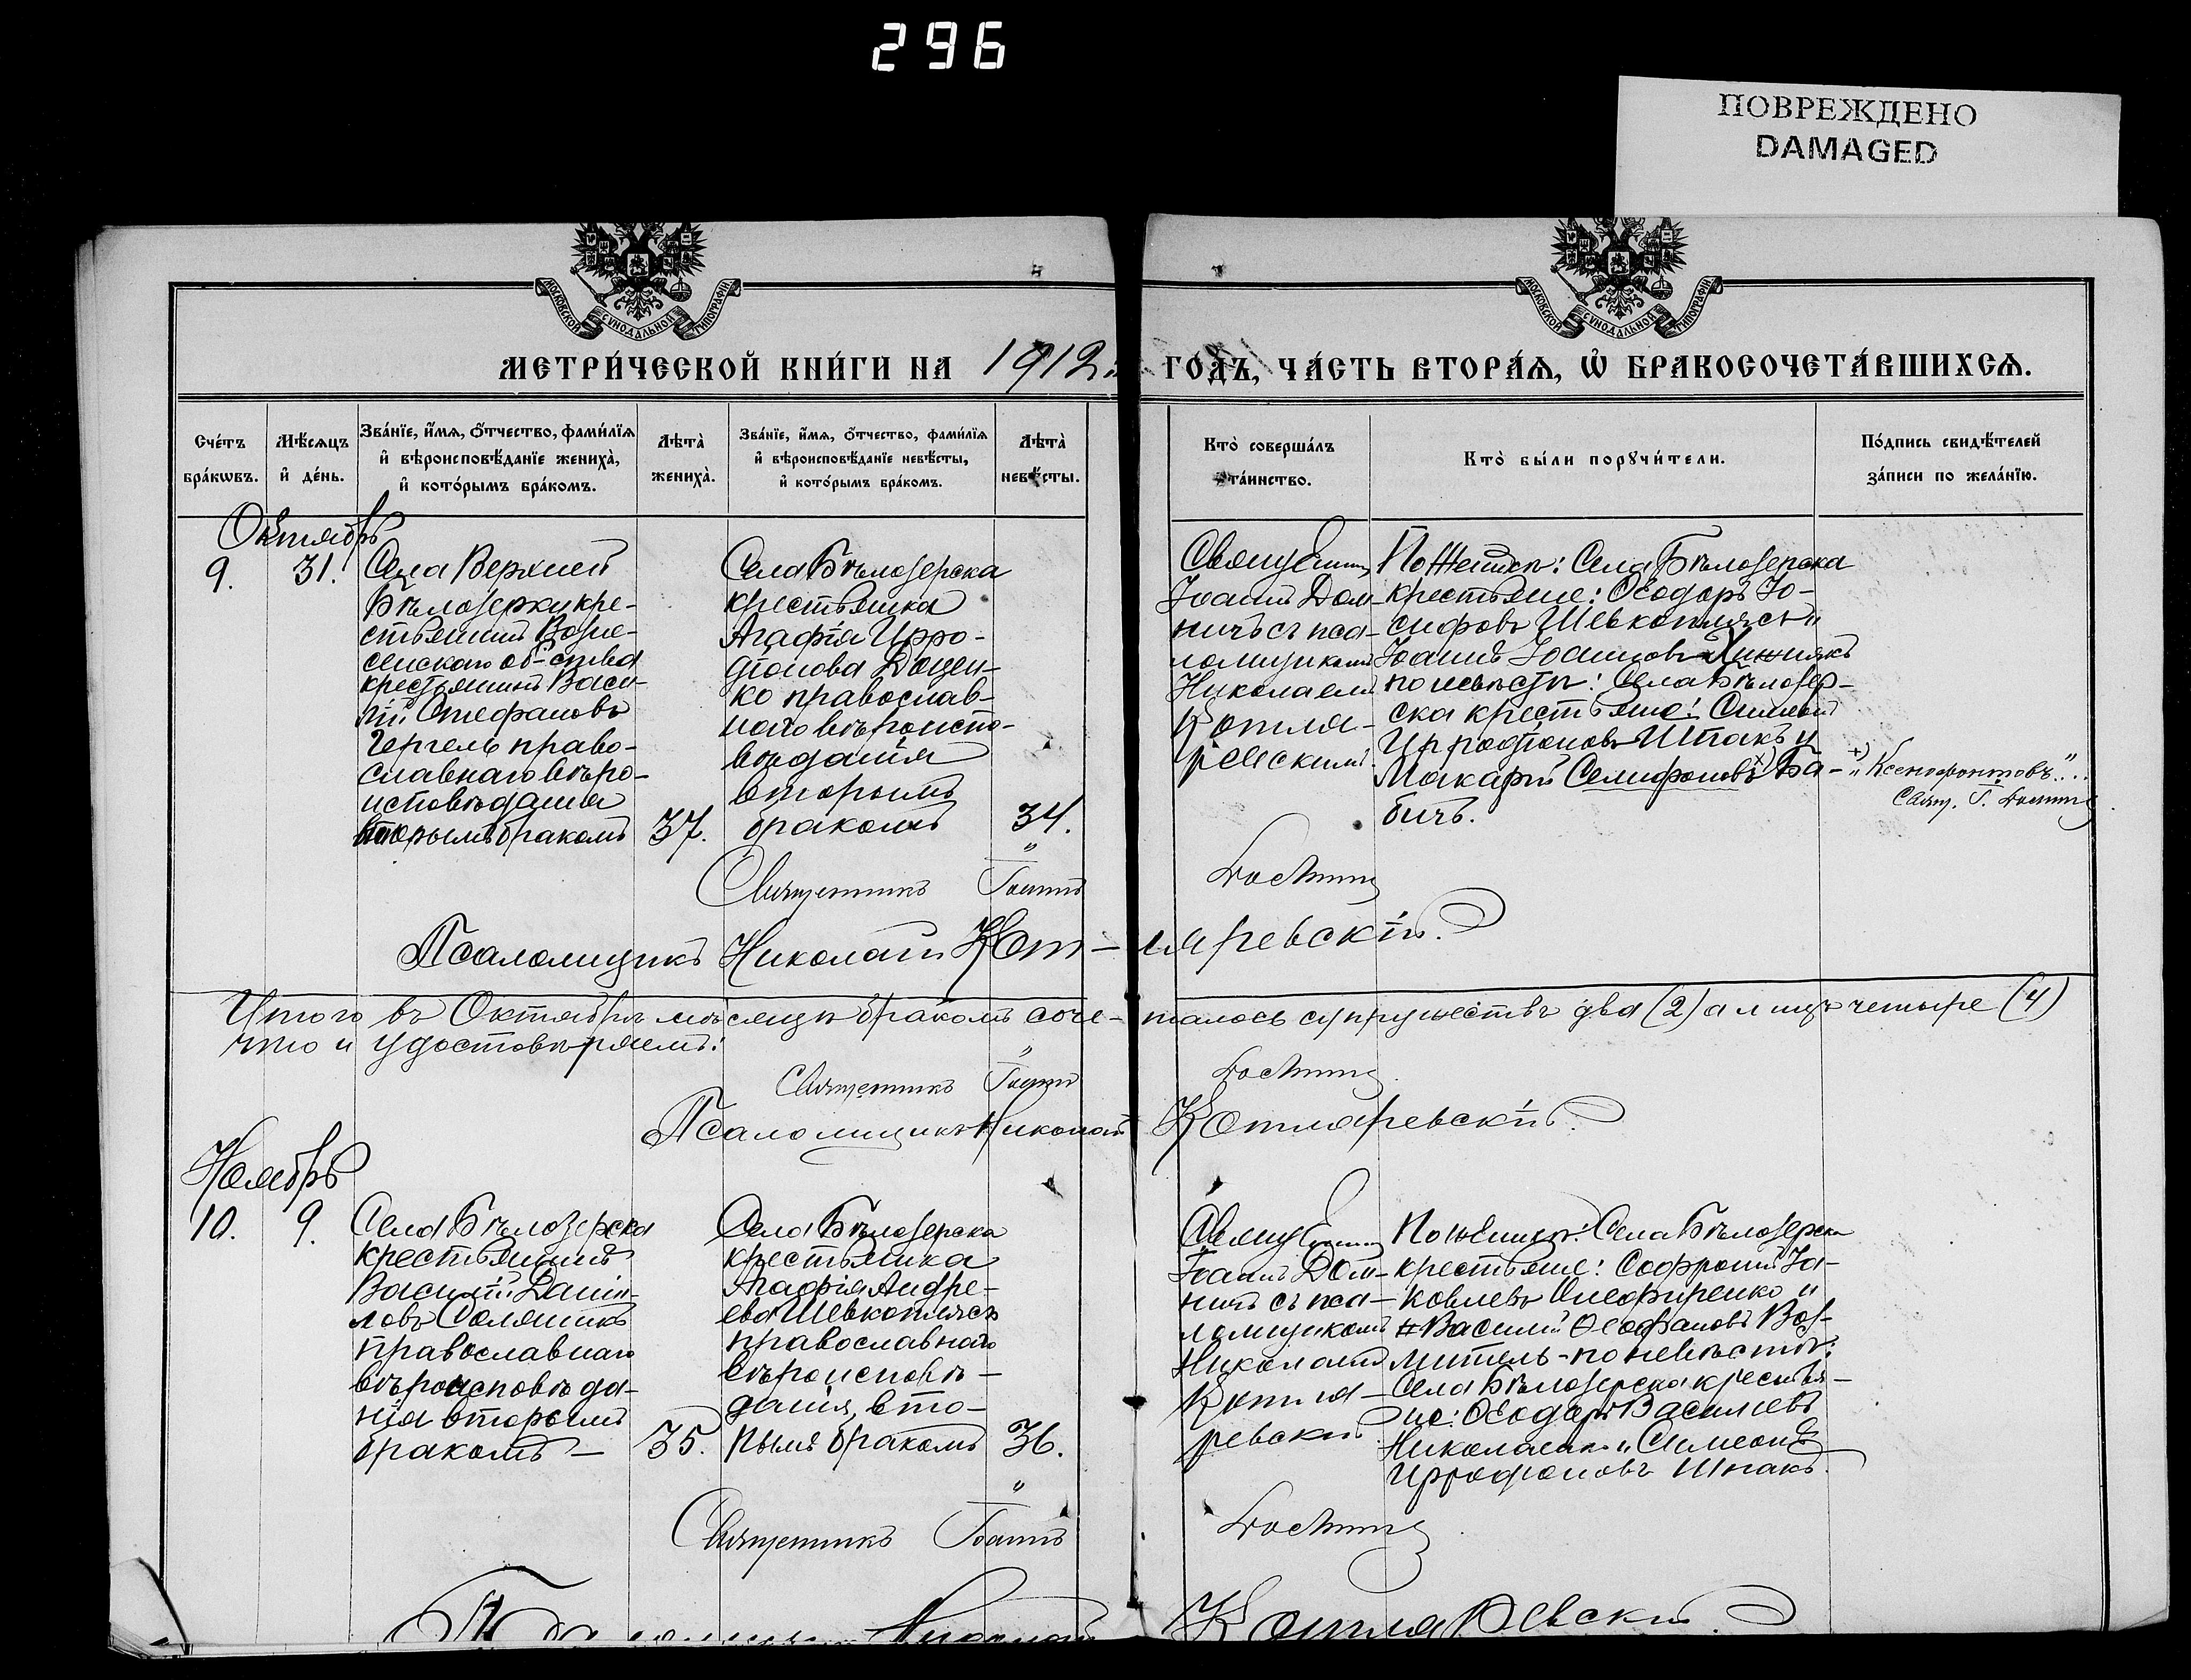 296
ПОВРЕЖДЕНО
DAMAGED
МОСКОВСКОЙ СѴНОДАЛЬНОЙ ТИПОГРАФІИ
МОСКОВСКОЙ СѴНОДАЛЬНОЙ ТИПОГРАФІИ
МЕТРИ́ЧЕСКОЙ КНИ́ГИ НА 1912 ГО́ДЪ, ЧА́СТЬ ВТОРА́Ѧ, Ѡ҆ БРАКОСОЧЕТА́ВШИХСѦ.
Сче́тъ
бра́кѡвъ.
Мѣ́сѧцъ
и҆ де́нь.
Зва́нїе, и҆́мѧ, ѻ҆́тчество, фами́лїѧ
и҆ вѣроисповѣ́данїе жениха̀,
и҆ кото́рымъ бра́комъ.
Лѣта̀
жениха̀.
Зва́нїе, и҆́мѧ, ѻ҆́тчество, фами́лїѧ
и҆ вѣроисповѣ́данїе невѣ́сты,
и҆ кото́рымъ бра́комъ.
Лѣта̀
невѣ́сты.
Кто̀ соверша́лъ
та́инство.
Кто̀ бы́ли порꙋчи́тели.
По́дпись свидѣ́телей
за́писи по жела́нїю.
Октябрь
9.
31.
Села Верхней
Бѣлозерки кре-
стьянинъ Возне-
сенскаго об-ства
крестьянинъ Васи-
лій Стефановъ
Гергель право-
славнаго вѣро-
исповѣданія
вторымъ бракомъ
37.
Села Бѣлозерска
крестьянка
Агафія Ирро-
діонова Доцен-
ко православ-
наго вѣроиспо-
вѣданія
вторымъ
бракомъ
34.
Священникъ
Іоаннъ Дом-
ничъ съ пса-
ломщикомъ
Николаемъ
Котля-
ревскимъ
По женихѣ: Села Бѣлозерска
крестьяне: Ѳеодоръ Іо-
сифовъ Шевкоплясъ и
Іоаннъ Іоанновъ
по невѣстѣ: Села Бѣлозер-
ска крестьяне: Симеонъ
Ирродіоновъ Шпакъ и
Макарій Семифоновъ +) Ба-
бичъ.
+) „Ксенофонтовъ"...
Свящ. І. Домничъ
Священникъ Іоаннъ Домничъ
Псаломщикъ Николай Кот-ляревскій.
Итого въ Октябрѣ мѣсяцѣ бракомъ соче-талось супружествъ два (2) а лицъ четыре (4)
что и удостовѣряемъ:
Священникъ Іоаннъ Домничъ
Псаломщикъ Николай Котляревскій.
Ноябрь
10.
9.
Села Бѣлозерска
крестьянинъ
Василій Даніи-
ловъ Соляникъ
православнаго
вѣроисповѣда-
нія вторымъ
бракомъ —
35.
Села Бѣлозерска
крестьянка
Агафія Андре-
ева Шевкоплясъ
православнаго
вѣроисповѣ-
данія, вто-
рымъ бракомъ
36.
Священникъ
Іоаннъ Дом-
ничъ съ пса-
ломщикомъ
Николаемъ
Котля-
ревскимъ
По женихѣ: Села Бѣлозерска
крестьяне: Софроній Іа-
ковлевъ Олефиренко и
Василій Ѳеофановъ Воз-
митель - по невѣстѣ:
Села Бѣлозерска крестья-
не: Ѳеодоръ Васильевъ
Николаенко и Симеонъ
Ирродіоновъ Шпакъ.
Священникъ Іоаннъ Домничъ
Псаломщикъ Николай Котляревскій.